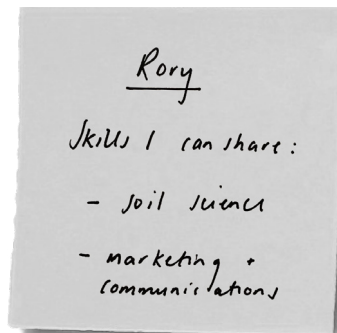 Rory
Skills I can share:
- soil science
- marketing +
communications